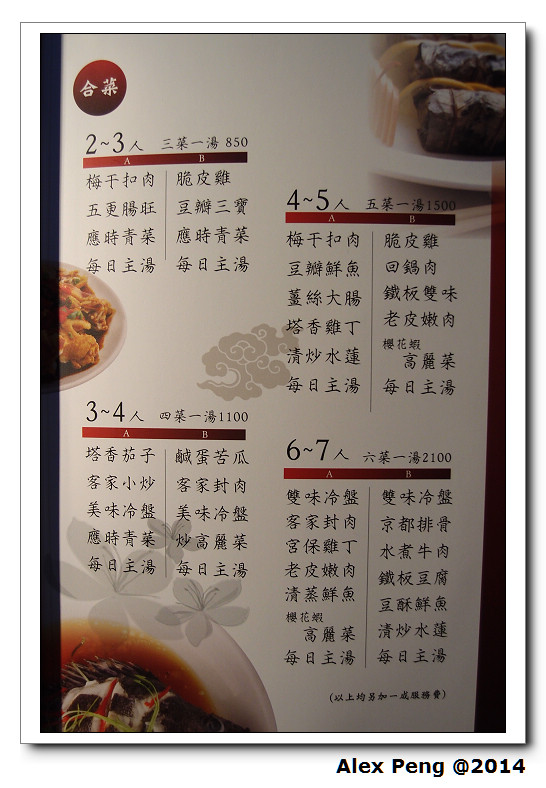 合菜
2~3人 三菜一湯 850
A B
梅干扣肉 脆皮雞
五更腸旺 豆瓣三寶
應時青菜 應時青菜
每日主湯 每日主湯
3~4人 四菜一湯1100
A B
塔香茄子 鹹蛋苦瓜
客家小炒 客家封肉
美味冷盤 美味冷盤
應時青菜 炒高麗菜
每日主湯 每日主湯
4~5人 五菜一湯1500
A B
梅干扣肉 脆皮雞
豆瓣鮮魚 回鍋肉
薑絲大腸 鐵板雙味
塔香雞丁 老皮嫩肉
清炒水蓮 櫻花蝦
高麗菜
每日主湯 每日主湯
6~7人 六菜一湯2100
A B
雙味冷盤 雙味冷盤
客家封肉 京都排骨
宮保雞丁 水煮牛肉
老皮嫩肉 鐵板豆腐
清蒸鮮魚 豆酥鮮魚
櫻花蝦 清炒水蓮
高麗菜
每日主湯 每日主湯
(以上均另加一成服務費)
Alex Peng @2014